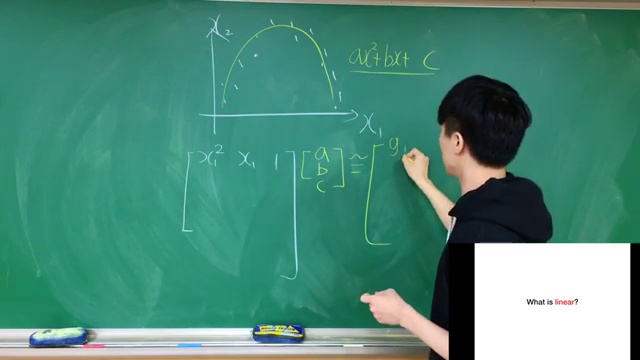 x₂
ax²+bx+ c
x₁
[x₁² x₁ 1] [a b c] ≈ [y₁
What is linear?